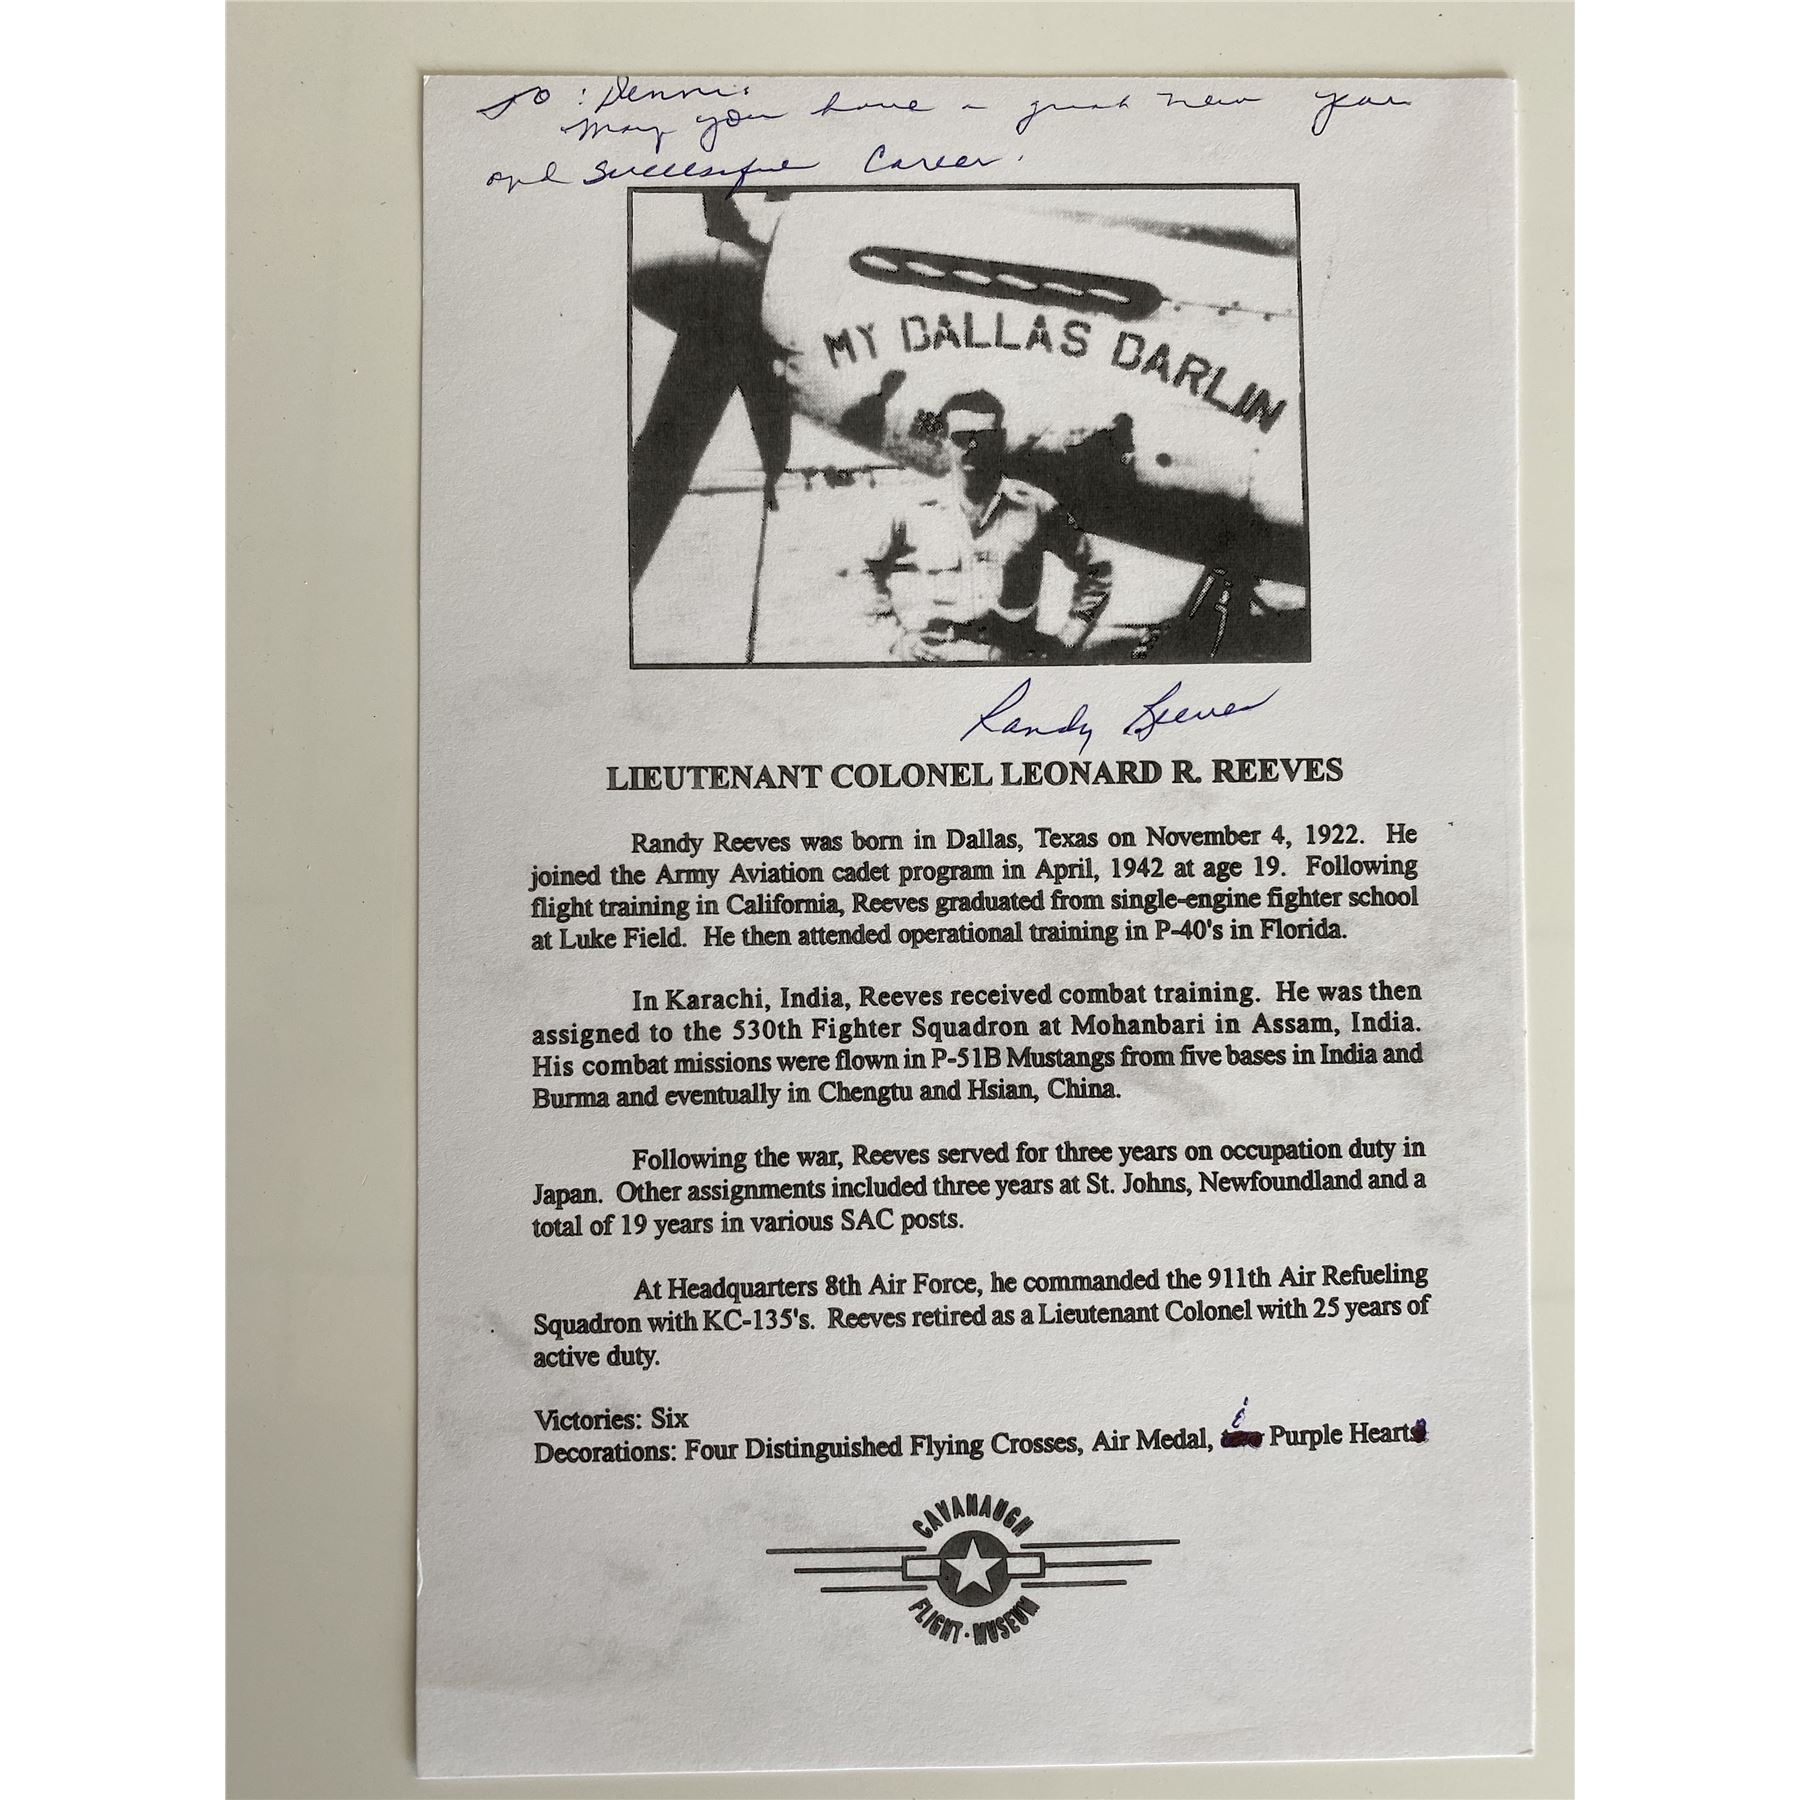 To: Dennis
May you have a great new year
and successful Career.
MY DALLAS DARLIN
Randy Reeves
LIEUTENANT COLONEL LEONARD R. REEVES
Randy Reeves was born in Dallas, Texas on November 4, 1922. He
joined the Army Aviation cadet program in April, 1942 at age 19. Following
flight training in California, Reeves graduated from single-engine fighter school
at Luke Field. He then attended operational training in P-40's in Florida.
In Karachi, India, Reeves received combat training. He was then
assigned to the 530th Fighter Squadron at Mohanbari in Assam, India.
His combat missions were flown in P-51B Mustangs from five bases in India and
Burma and eventually in Chengtu and Hsian, China.
Following the war, Reeves served for three years on occupation duty in
Japan. Other assignments included three years at St. Johns, Newfoundland and a
total of 19 years in various SAC posts.
At Headquarters 8th Air Force, he commanded the 911th Air Refueling
Squadron with KC-135's. Reeves retired as a Lieutenant Colonel with 25 years of
active duty.
Victories: Six
Decorations: Four Distinguished Flying Crosses, Air Medal, Purple Heart
CAVANAUGH
FLIGHT · MUSEUM